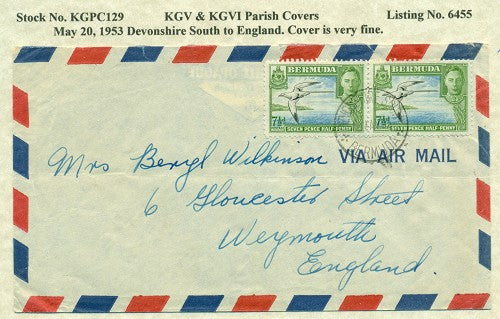 Stock No. KGPC129 KGV & KGVI Parish Covers Listing No. 6455
May 20, 1953 Devonshire South to England. Cover is very fine.
BERMUDA BERMUDA
7½d 7½d
SEVEN PENCE HALF-PENNY SEVEN PENCE HALF-PENNY
BERMUDA
VIA AIR MAIL
Mrs Beryl Wilkinson
6 Gloucester Street
Weymouth
England.